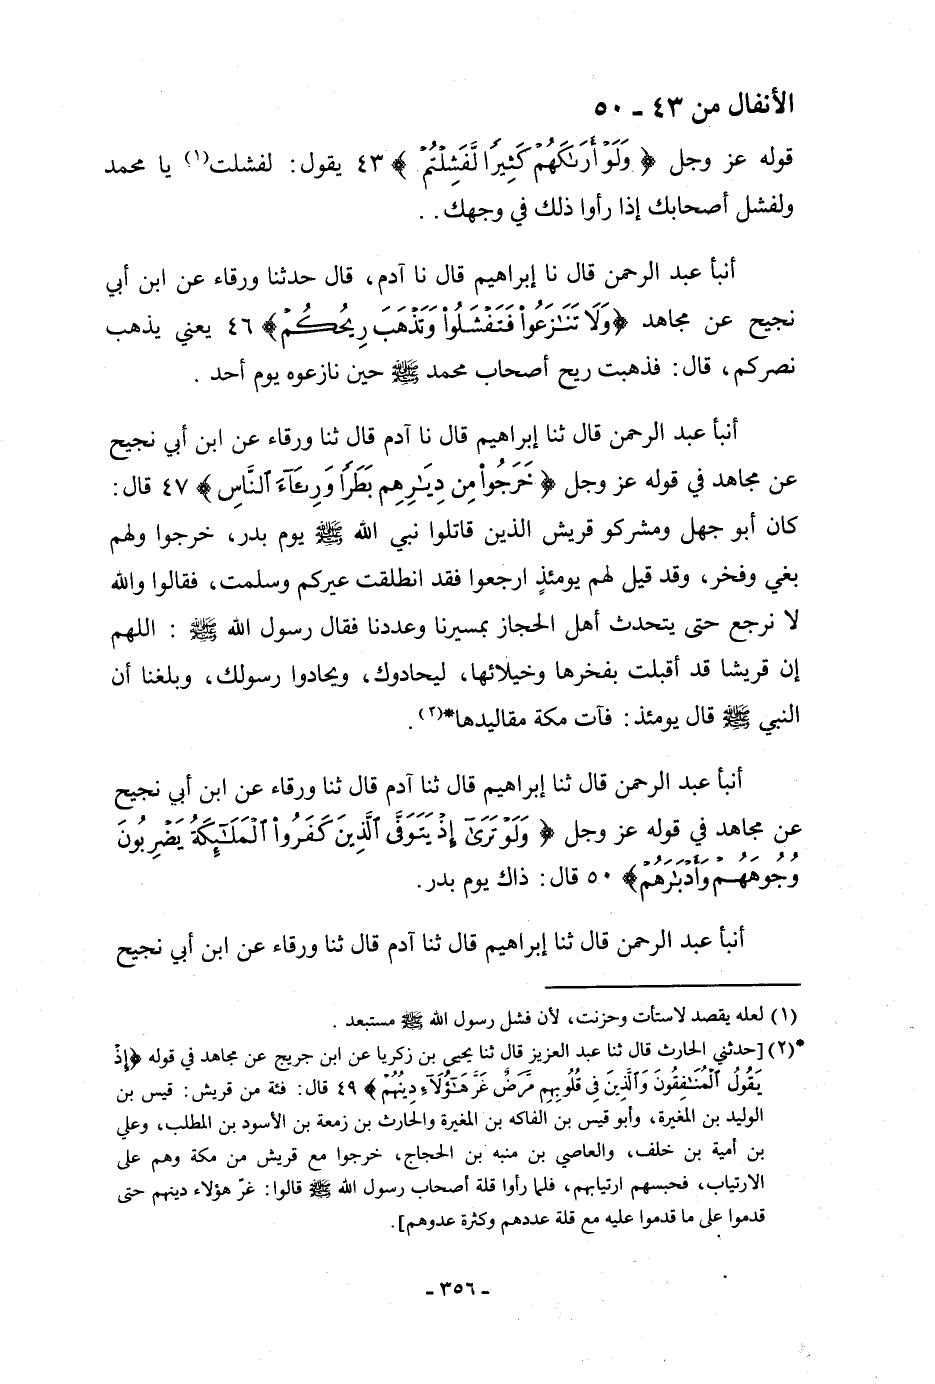 الأنفال من ٤٣ ـ ٥٠
قوله عز وجل ﴿ وَلَوْ أَرَىٰكَهُمْ كَثِيرًا لَّفَشِلْتُمْ ﴾ ٤٣ يقول: لفشلت(١) يا محمد
ولفشل أصحابك إذا رأوا ذلك في وجهك. .
أنبأ عبد الرحمن قال نا إبراهيم قال نا آدم، قال حدثنا ورقاء عن ابن أبي
نجيح عن مجاهد ﴿وَلَا تَنَٰزَعُوا۟ فَتَفْشَلُوا۟ وَتَذْهَبَ رِيحُكُمْ﴾ ٤٦ يعني يذهب
نصركم، قال: فذهبت ريح أصحاب محمد ﷺ حين نازعوه يوم أحد .
أنبأ عبد الرحمن قال ثنا إبراهيم قال نا آدم قال ثنا ورقاء عن ابن أبي نجيح
عن مجاهد في قوله عز وجل ﴿ خَرَجُوا۟ مِن دِيَٰرِهِم بَطَرًا وَرِئَآءَ ٱلنَّاسِ ﴾ ٤٧ قال:
كان أبو جهل ومشركو قريش الذين قاتلوا نبي الله ﷺ يوم بدر، خرجوا ولهم
بغي وفخر، وقد قيل لهم يومئذٍ ارجعوا فقد انطلقت عيركم وسلمت، فقالوا والله
لا نرجع حتى يتحدث أهل الحجاز بمسيرنا وعددنا فقال رسول الله ﷺ : اللهم
إن قريشا قد أقبلت بفخرها وخيلائها، ليحادوك، ويحادوا رسولك، وبلغنا أن
النبي ﷺ قال يومئذ: فآت مكة مقاليدها*(٢).
أنبأ عبد الرحمن قال ثنا إبراهيم قال ثنا آدم قال ثنا ورقاء عن ابن أبي نجيح
عن مجاهد في قوله عز وجل ﴿ وَلَوْ تَرَىٰٓ إِذْ يَتَوَفَّى ٱلَّذِينَ كَفَرُوا۟ ٱلْمَلَٰٓئِكَةُ يَضْرِبُونَ
وُجُوهَهُمْ وَأَدْبَٰرَهُمْ﴾ ٥٠ قال: ذاك يوم بدر.
أنبأ عبد الرحمن قال ثنا إبراهيم قال ثنا آدم قال ثنا ورقاء عن ابن أبي نجيح
(١) لعله يقصد لاستأت وحزنت، لأن فشل رسول الله ﷺ مستبعد .
*(٢) [حدثني الحارث قال ثنا عبد العزيز قال ثنا يحيى بن زكريا عن ابن جريج عن مجاهد في قوله ﴿إِذْ
يَقُولُ ٱلْمُنَٰفِقُونَ وَٱلَّذِينَ فِى قُلُوبِهِم مَّرَضٌ غَرَّ هَٰٓؤُلَآءِ دِينُهُمْ ﴾ ٤٩ قال: فئة من قريش: قيس بن
الوليد بن المغيرة، وأبو قيس بن الفاكه بن المغيرة والحارث بن زمعة بن الأسود بن المطلب، وعلي
بن أمية بن خلف، والعاصي بن منبه بن الحجاج، خرجوا مع قريش من مكة وهم على
الارتياب، فحبسهم ارتيابهم، فلما رأوا قلة أصحاب رسول الله ﷺ قالوا: غرّ هؤلاء دينهم حتى
قدموا على ما قدموا عليه مع قلة عددهم وكثرة عدوهم].
ـ ٣٥٦ ـ